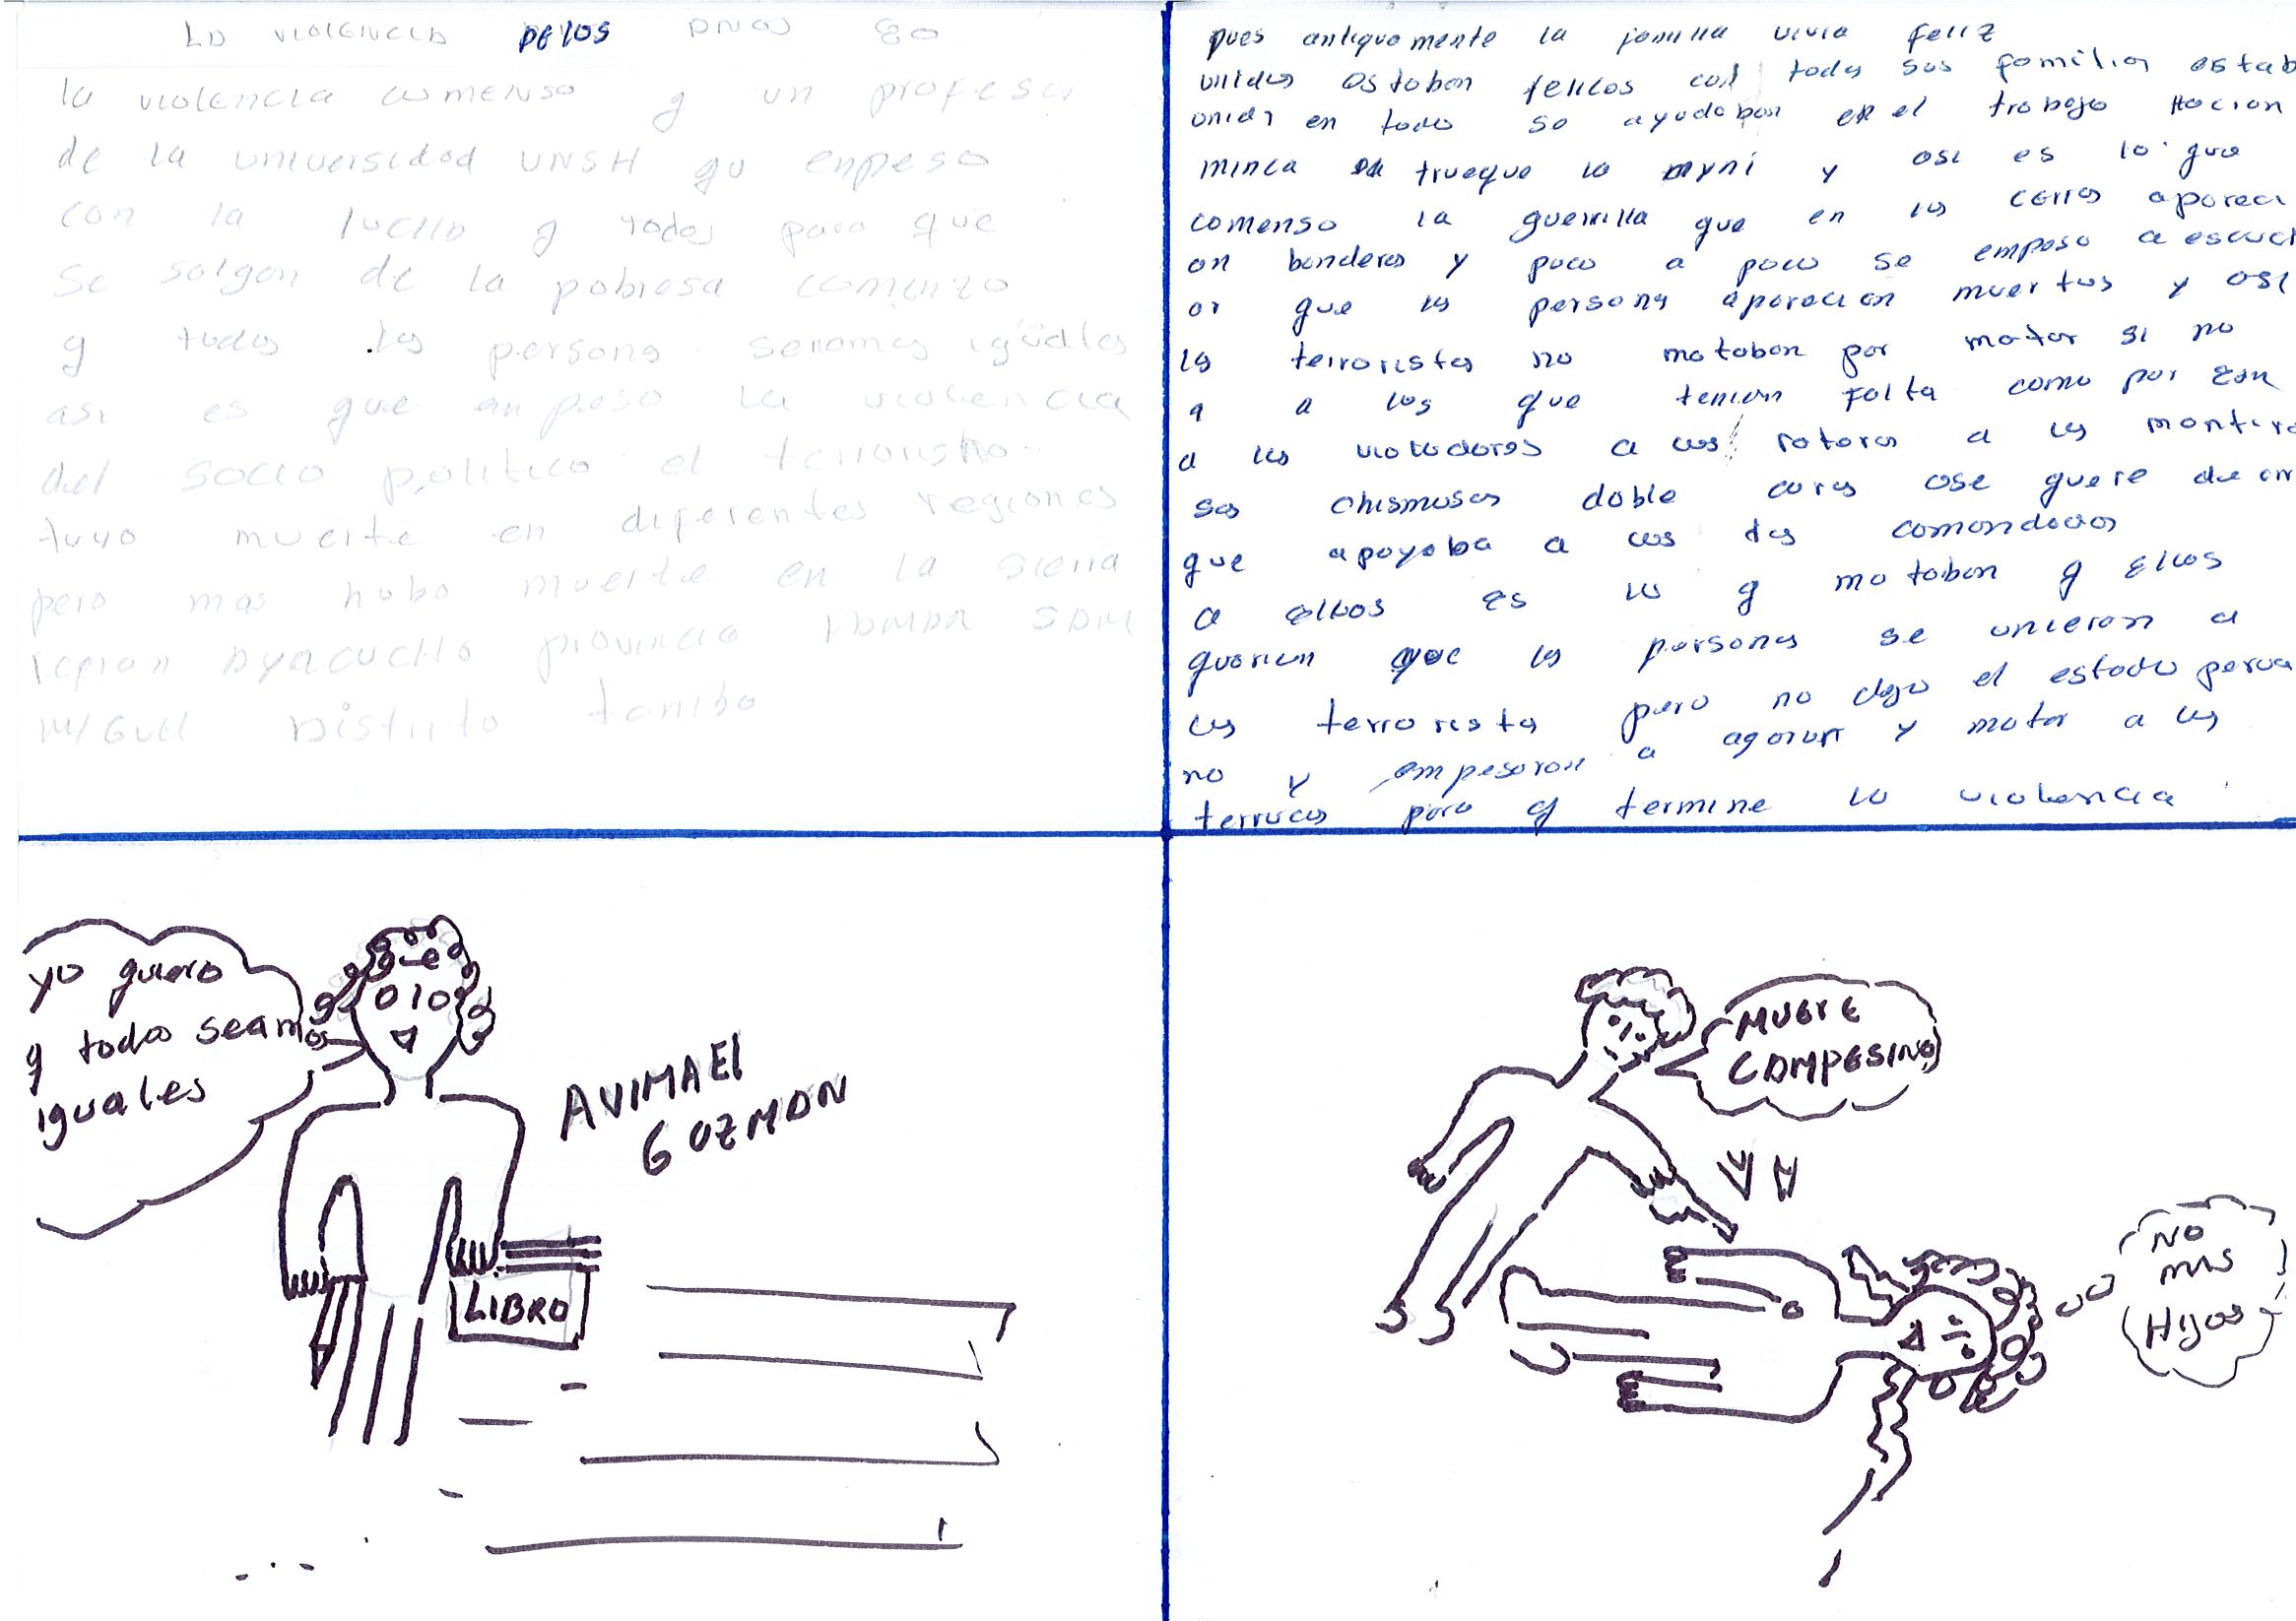 LA VIOLENCIA DE LOS AÑOS 80
la violencia comenso q un profesor
de la universidad UNSH qu enpeso
con la lucha q todos para que
se salgan de la pobresa comenzo
q todos las persona seriamos iguales
asi es que enpeso la violencia
del socio politico el terrorismo
tuvo muerte en diferentes regiones
pero mas hubo muerte en la sierra
region AYACUCHO provincia LAMAR SAN
MIGUEL Distrito tambo
pues antiguamente la familia vivia feliz
unidos estaban felices con todas sus familias estab
unidos en todo se ayudaban en el trabajo Hacian
minca trueque la ayni y asi es lo que
comenso la guerrilla que en los cerros apareci
an banderas y poco a poco se empeso a escuch
ar que las persona aparecian muertos y asi
los terroristas no mataban por matar si no
q a los que tenian falta como por
a los violadores a los rateros a los mentiro
sos chismosas doble caras ose quere
que apoyaba a los dos comandados
a ellos es lo q mataban q ellos
querian que las personas se unieran a
los terrorista pero no dejo el estado perua
no y empesaron a agarar y matar a los
terrucos para q termine la violencia
yo quero
q todos seamos
iguales
AVIMAEl
GUZMAN
LIBRO
MUERE
CAMPESINO
NO
MIS
HIJOS